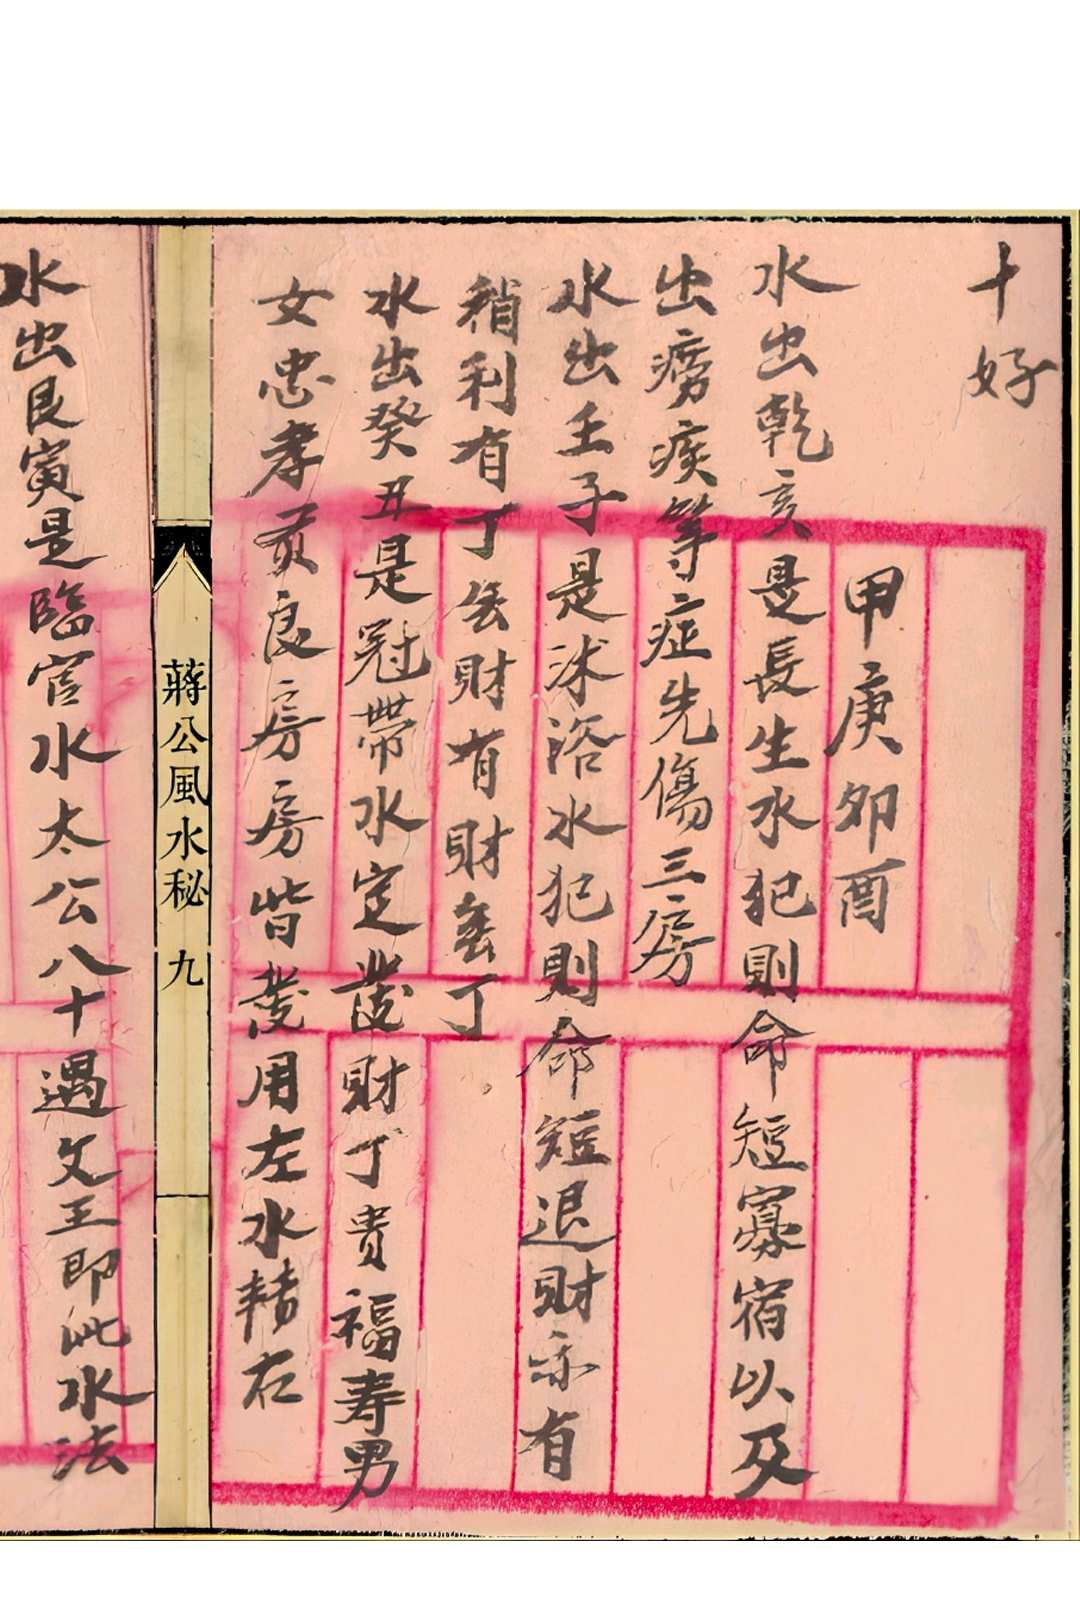 十好
甲庚卯酉
水出乾亥是長生水犯則命短寡宿以及
出癆疾等症先傷三房
水出壬子是沭浴水犯則命短退財亦有
稍利有丁無財有財無丁
水出癸丑是冠帶水定發財丁貴福寿男
女忠孝賢良房房皆發用左水轉右
蔣公風水秘 九
水出艮寅是臨官水太公八十遇文王即此水法